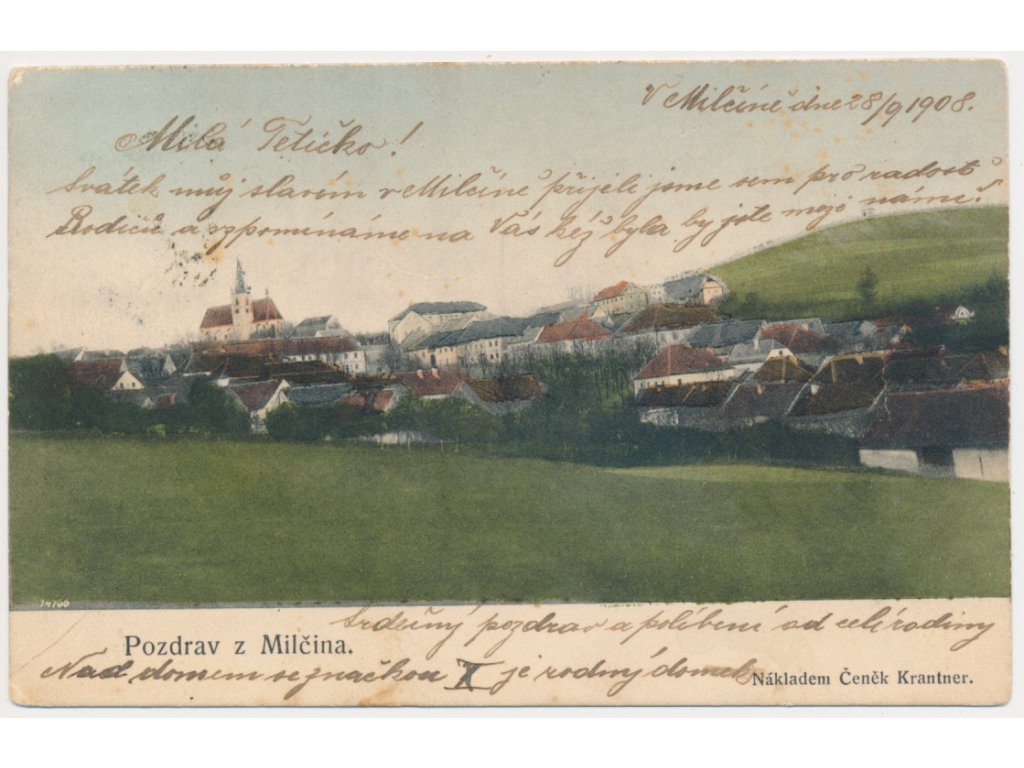 V Milčíně dne 28/9 1908.
Milá Tetičko!
Svátek můj slavím v Milčíně přijeli jsme sem pro radost
Rodičů a vzpomínáme na Vás kéž byla by jste mezi námi!
74760
Srdečný pozdrav a políbení od celé rodiny
Pozdrav z Milčina.
Nad domem se značkou X je rodný domek
Nákladem Čeněk Krantner.